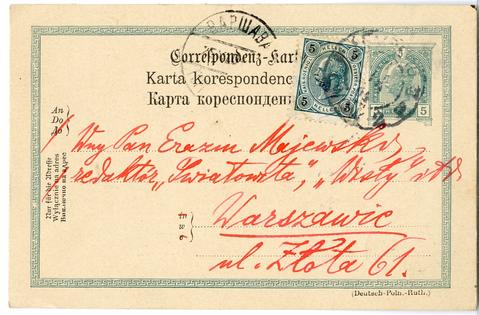 ВАРШАВА
Correspondenz-Kar
Karta korespondenc
Карта кореспонден
5 HELLER 5
5 5
5
An
Do
Ао
Nur für die Adresse
Wyłącznie na adres
Виключно на адрес
Wny Pan Erazm Majewski
redaktor „Światowita”, „Wisły” itd
w
Warszawie
ul. Złota 61.
(Deutsch-Poln.-Ruth.)